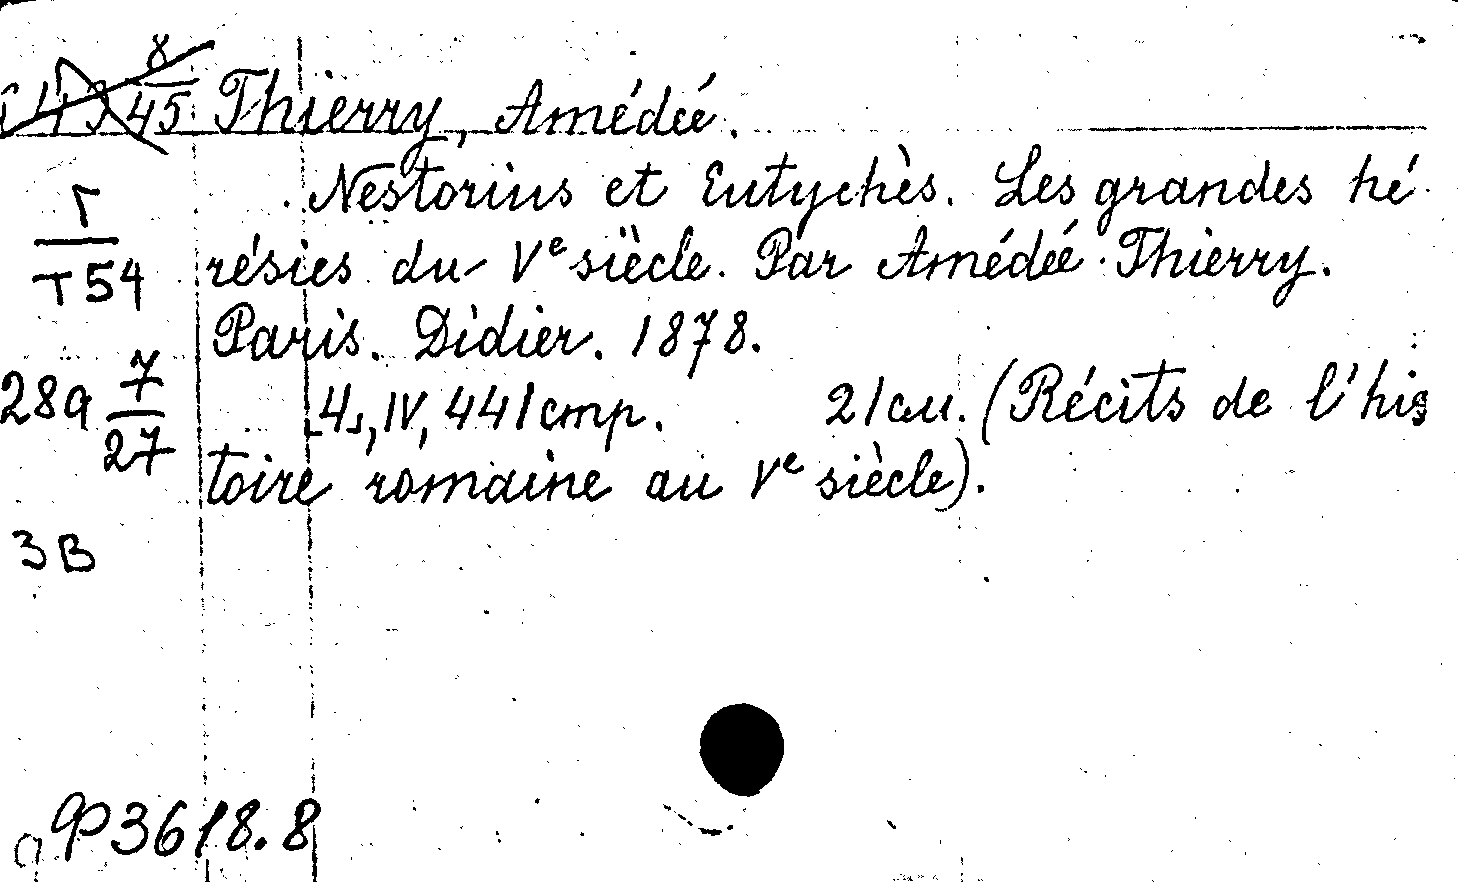 8
45 Thierry, Amédée.
Nestorius et Eutychès. Les grandes hé
Г
résies du Vᵉ siècle. Par Amédée Thierry.
T54
Paris. Didier. 1878.
28a 7
27
[4], IV, 441 стр. 21 см. (Récits de l'his
toire romaine au Vᵉ siècle).
3В
Ф3618.8